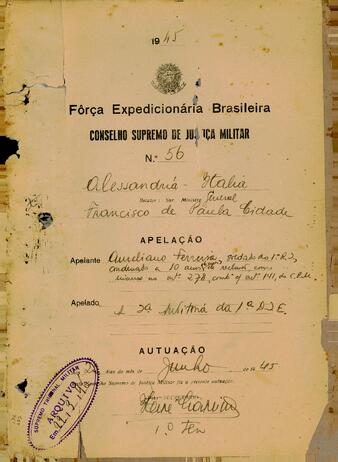 1945
Fôrça Expedicionária Brasileira
CONSELHO SUPREMO DE JUSTIÇA MILITAR
N.º 56
Alessandria - Italia
Relator: Snr. Ministro General
Francisco de Paula Cidade
APELAÇÃO
Apelante Aureliano Ferreira, soldado do 1º R.I,
condenado a 10 anos de reclusão, como
incurso no art. 278, comb. art. 141, do C.P.M.
Apelado A 2ª Auditoria da 1ª D.I.E.
AUTUAÇÃO
dias do mês de Junho de 1945
Supremo de Justiça Militar fiz a presente autuação.
1.º Ten
SUPREMO TRIBUNAL MILITAR
ARQUIVO
Em